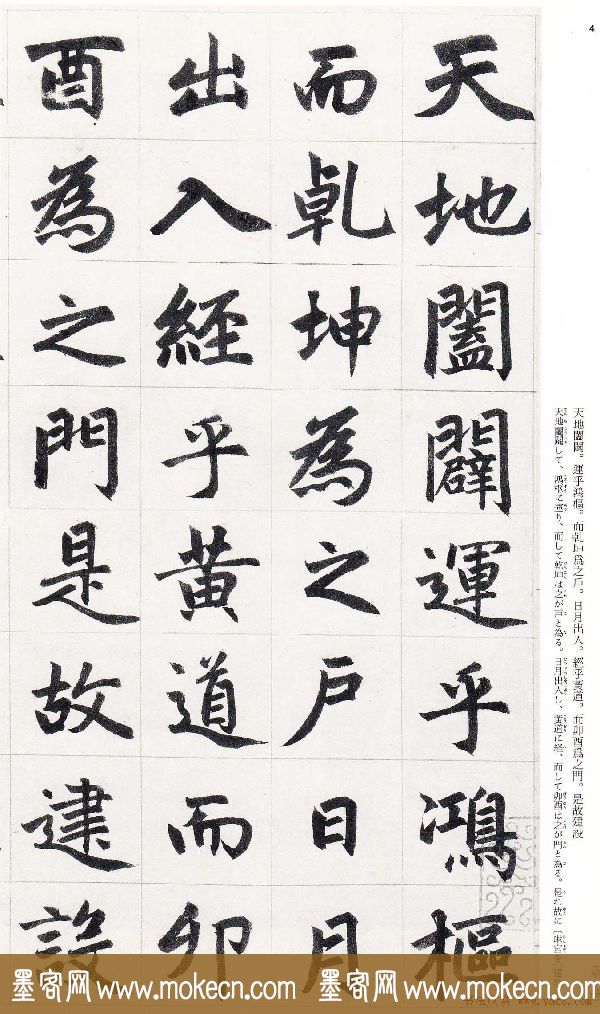 4
天地闔闢運乎鴻樞
而乹坤為之戶日月
出入經乎黃道而卯
酉為之門是故建設
天地闔闢。運乎鴻樞。而乹坤爲之戶。日月出入。經乎黃道。而卯酉爲之門。是故建設
天地闔闢して、鴻枢に運り、而して乾坤は之が戸と為る。日月出入し、黄道に経、而して卯酉は之が門と為る。是れ故に
墨客网 www.mokecn.com 墨客网 www.mokecn.com